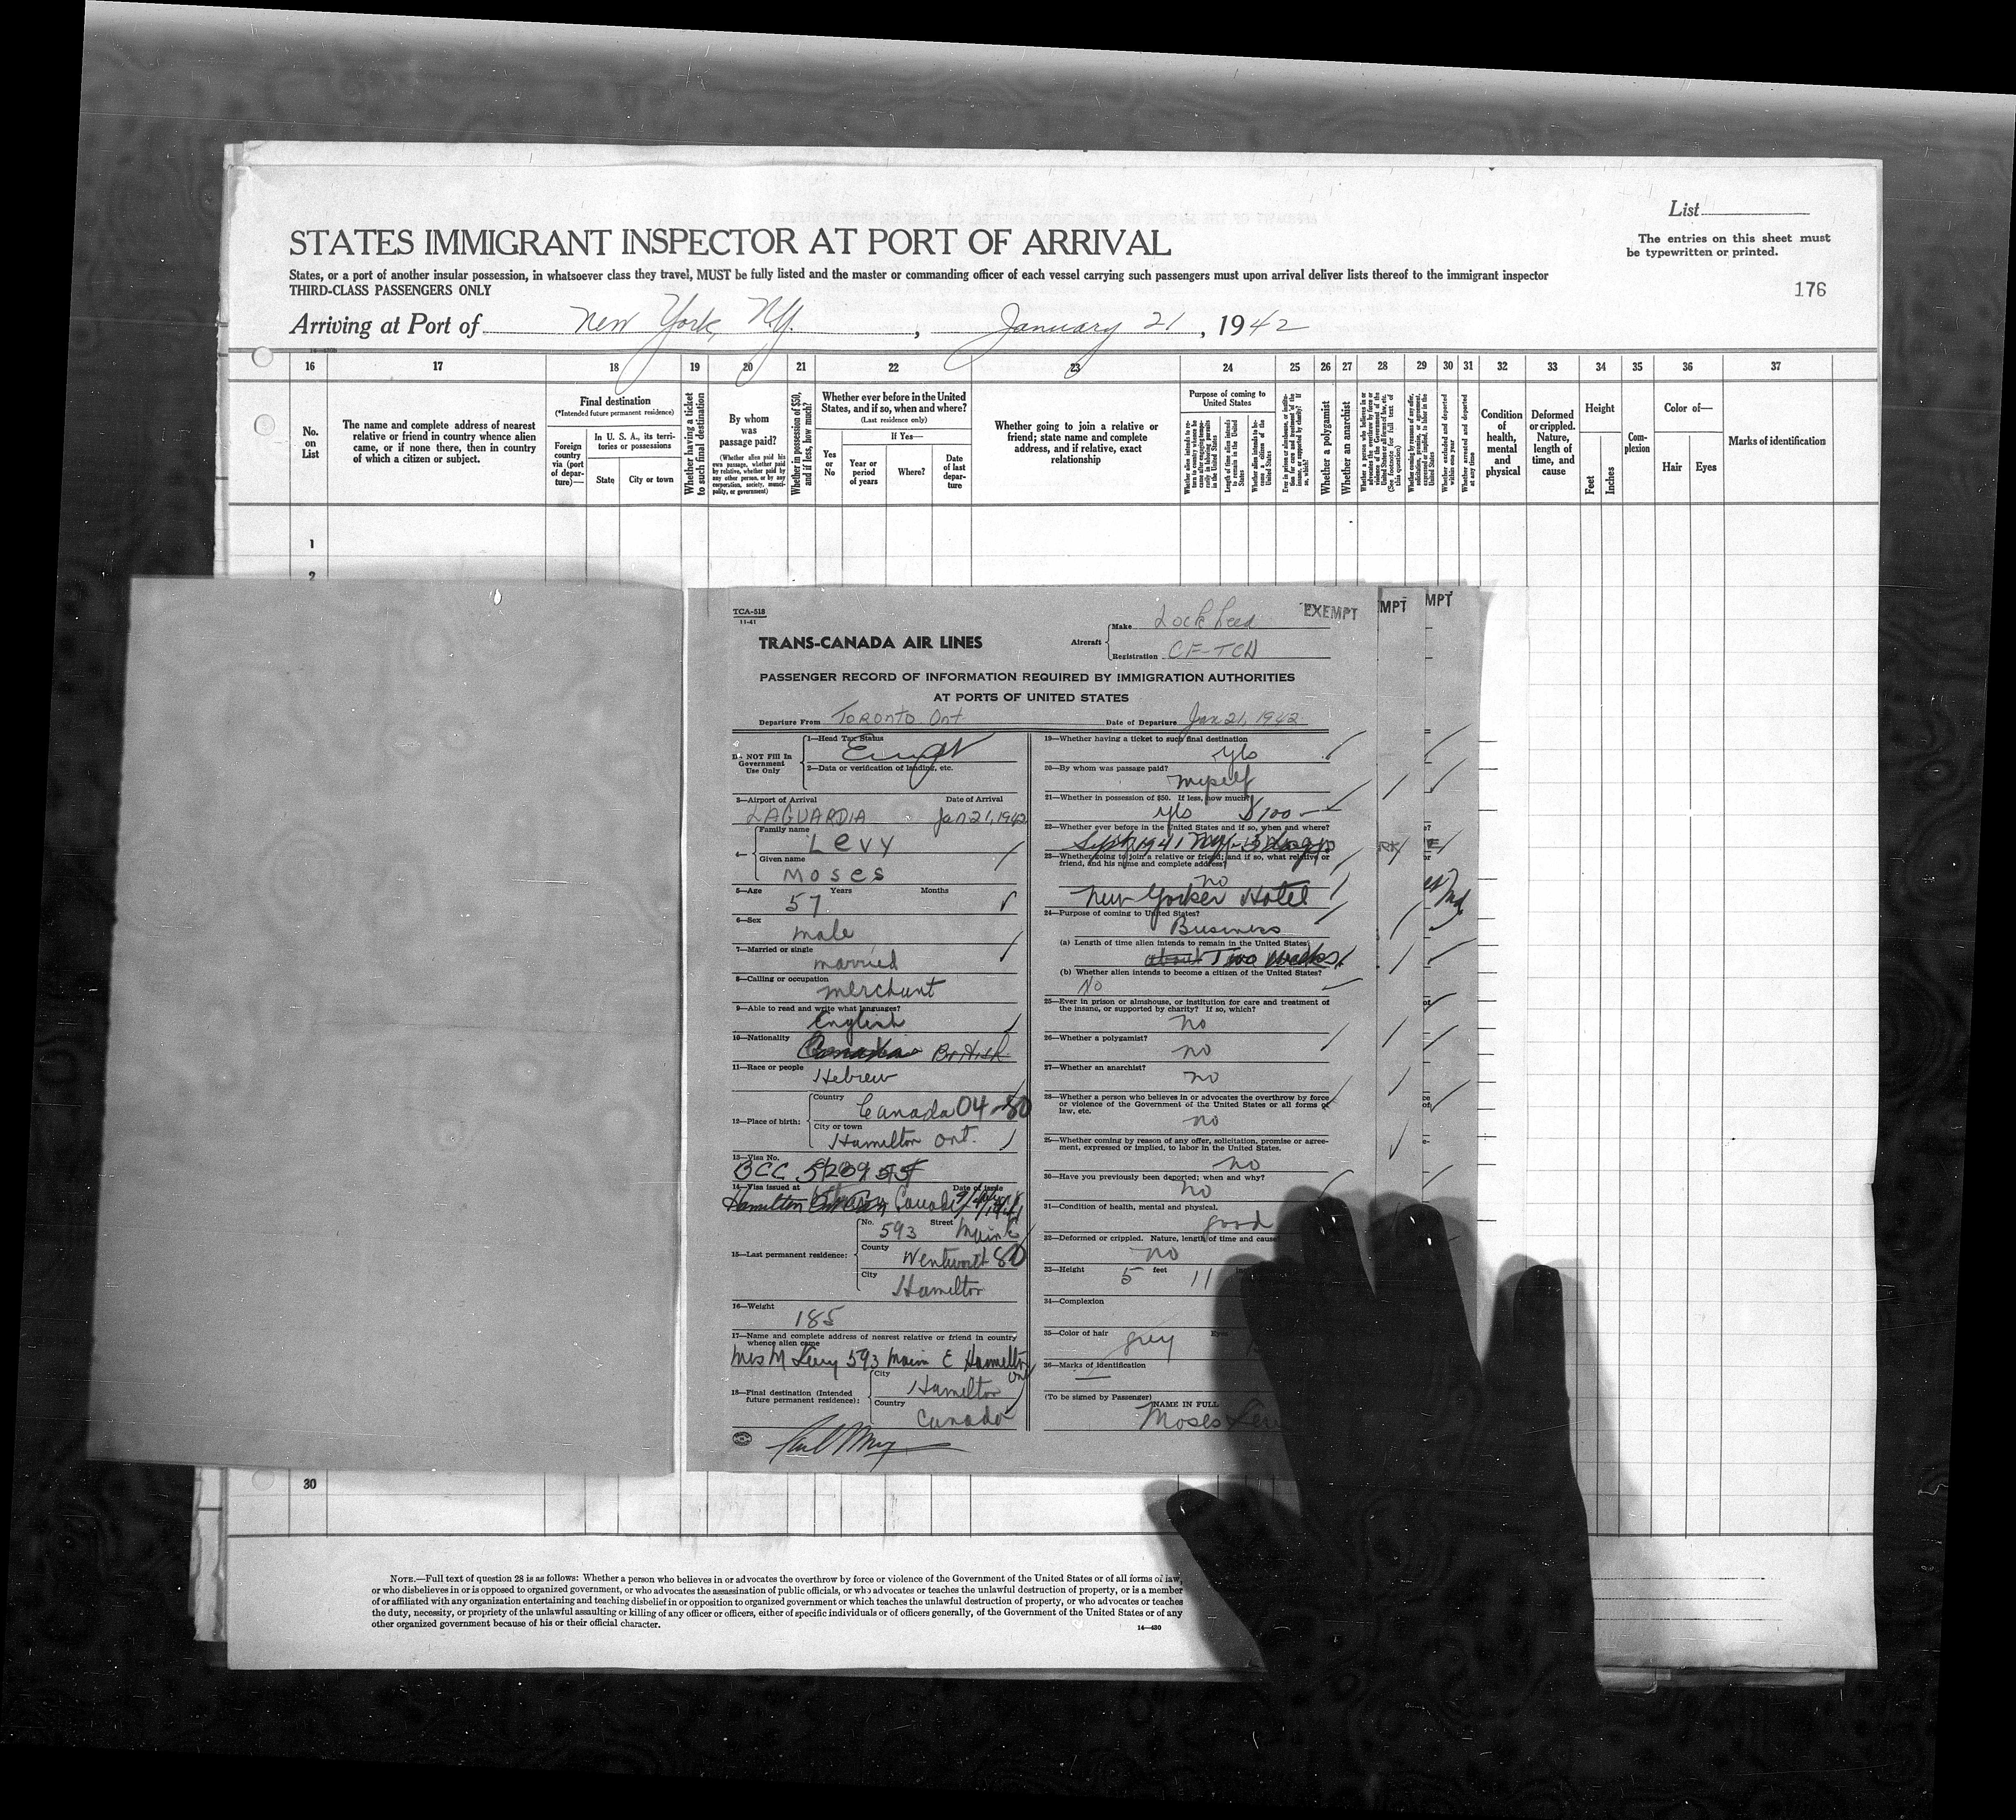 List
The entries on this sheet must
be typewritten or printed.
176
STATES IMMIGRANT INSPECTOR AT PORT OF ARRIVAL
States, or a port of another insular possession, in whatsoever class they travel, MUST be fully listed and the master or commanding officer of each vessel carrying such passengers must upon arrival deliver lists thereof to the immigrant inspector
THIRD-CLASS PASSENGERS ONLY
Arriving at Port of New York, N.Y. , January 21, 1942
16 17 18 19 20 21 22 23 24 25 26 27 28 29 30 31 32 33 34 35 36 37
No. on List
The name and complete address of nearest
relative or friend in country whence alien
came, or if none there, then in country
of which a citizen or subject.
Final destination
(*Intended future permanent residence)
Foreign
country
via (port
of depar-
ture)—
In U. S. A., its terri-
tories or possessions
State
City or town
Whether having a ticket
to such final destination
By whom
was
passage paid?
(Whether alien paid his
own passage, whether paid
by relative, whether paid by
any other person, or by any
corporation, society, munici-
pality, or government)
Whether in possession of $50,
and if less, how much?
Whether ever before in the United
States, and if so, when and where?
(Last residence only)
Yes
or
No
If Yes—
Year or
period
of years
Where?
Date
of last
depar-
ture
Whether going to join a relative or
friend; state name and complete
address, and if relative, exact
relationship
Purpose of coming to
United States
Whether a polygamist
Whether an anarchist
Condition
of
health,
mental
and
physical
Deformed
or crippled.
Nature,
length of
time, and
cause
Height
Feet
Inches
Com-
plexion
Color of—
Hair
Eyes
Marks of identification
1
2
TCA-518
11-41
EXEMPT
MPT
MPT
TRANS-CANADA AIR LINES
Aircraft
Make Lockheed
Registration CF-TCN
PASSENGER RECORD OF INFORMATION REQUIRED BY IMMIGRATION AUTHORITIES
AT PORTS OF UNITED STATES
Departure From Toronto Ont
Date of Departure Jan 21, 1942
NOT Fill In
Government
Use Only
1—Head Tax Status
2—Data or verification of landing, etc.
3—Airport of Arrival
Date of Arrival
LAGUARDIA Jan 21, 1942
4—
Family name
Levy
Given name
Moses
5—Age Years Months
57
6—Sex
male
7—Married or single
married
8—Calling or occupation
merchant
9—Able to read and write what languages?
English
10—Nationality
Canadian British
11—Race or people
Hebrew
12—Place of birth:
Country
Canada 04-80
City or town
Hamilton Ont.
13—Visa No.
BCC
14—Visa issued at
Date of issue
Hamilton Canada
15—Last permanent residence:
No. 593 Street Main E
County
Wentworth 80
City
Hamilton
16—Weight
185
17—Name and complete address of nearest relative or friend in country
whence alien came
Mrs M Levy 593 Main E Hamilton
Ont
18—Final destination (Intended
future permanent residence):
City
Hamilton
Country
Canada
19—Whether having a ticket to such final destination
yes
20—By whom was passage paid?
myself
21—Whether in possession of $50. If less, how much?
yes $100—
22—Whether ever before in the United States and if so, when and where?
Sept 1941
23—Whether going to join a relative or friend; and if so, what relative or
friend, and his name and complete address?
no
New Yorker Hotel
24—Purpose of coming to United States?
Business
(a) Length of time alien intends to remain in the United States
about Two weeks
(b) Whether alien intends to become a citizen of the United States?
No
25—Ever in prison or almshouse, or institution for care and treatment of
the insane, or supported by charity? If so, which?
no
26—Whether a polygamist?
no
27—Whether an anarchist?
no
28—Whether a person who believes in or advocates the overthrow by force
or violence of the Government of the United States or all forms of
law, etc.
no
29—Whether coming by reason of any offer, solicitation, promise or agree-
ment, expressed or implied, to labor in the United States.
no
30—Have you previously been deported; when and why?
no
31—Condition of health, mental and physical.
good
32—Deformed or crippled. Nature, length of time and cause
no
33—Height 5 feet 11
34—Complexion
35—Color of hair grey
36—Marks of Identification
(To be signed by Passenger)
NAME IN FULL
Moses Lev
30
NOTE.—Full text of question 28 is as follows: Whether a person who believes in or advocates the overthrow by force or violence of the Government of the United States or of all forms of law,
or who disbelieves in or is opposed to organized government, or who advocates the assassination of public officials, or who advocates or teaches the unlawful destruction of property, or is a member
of or affiliated with any organization entertaining and teaching disbelief in or opposition to organized government or which teaches the unlawful destruction of property, or who advocates or teaches
the duty, necessity, or propriety of the unlawful assaulting or killing of any officer or officers, either of specific individuals or of officers generally, of the Government of the United States or of any
other organized government because of his or their official character.
14—430